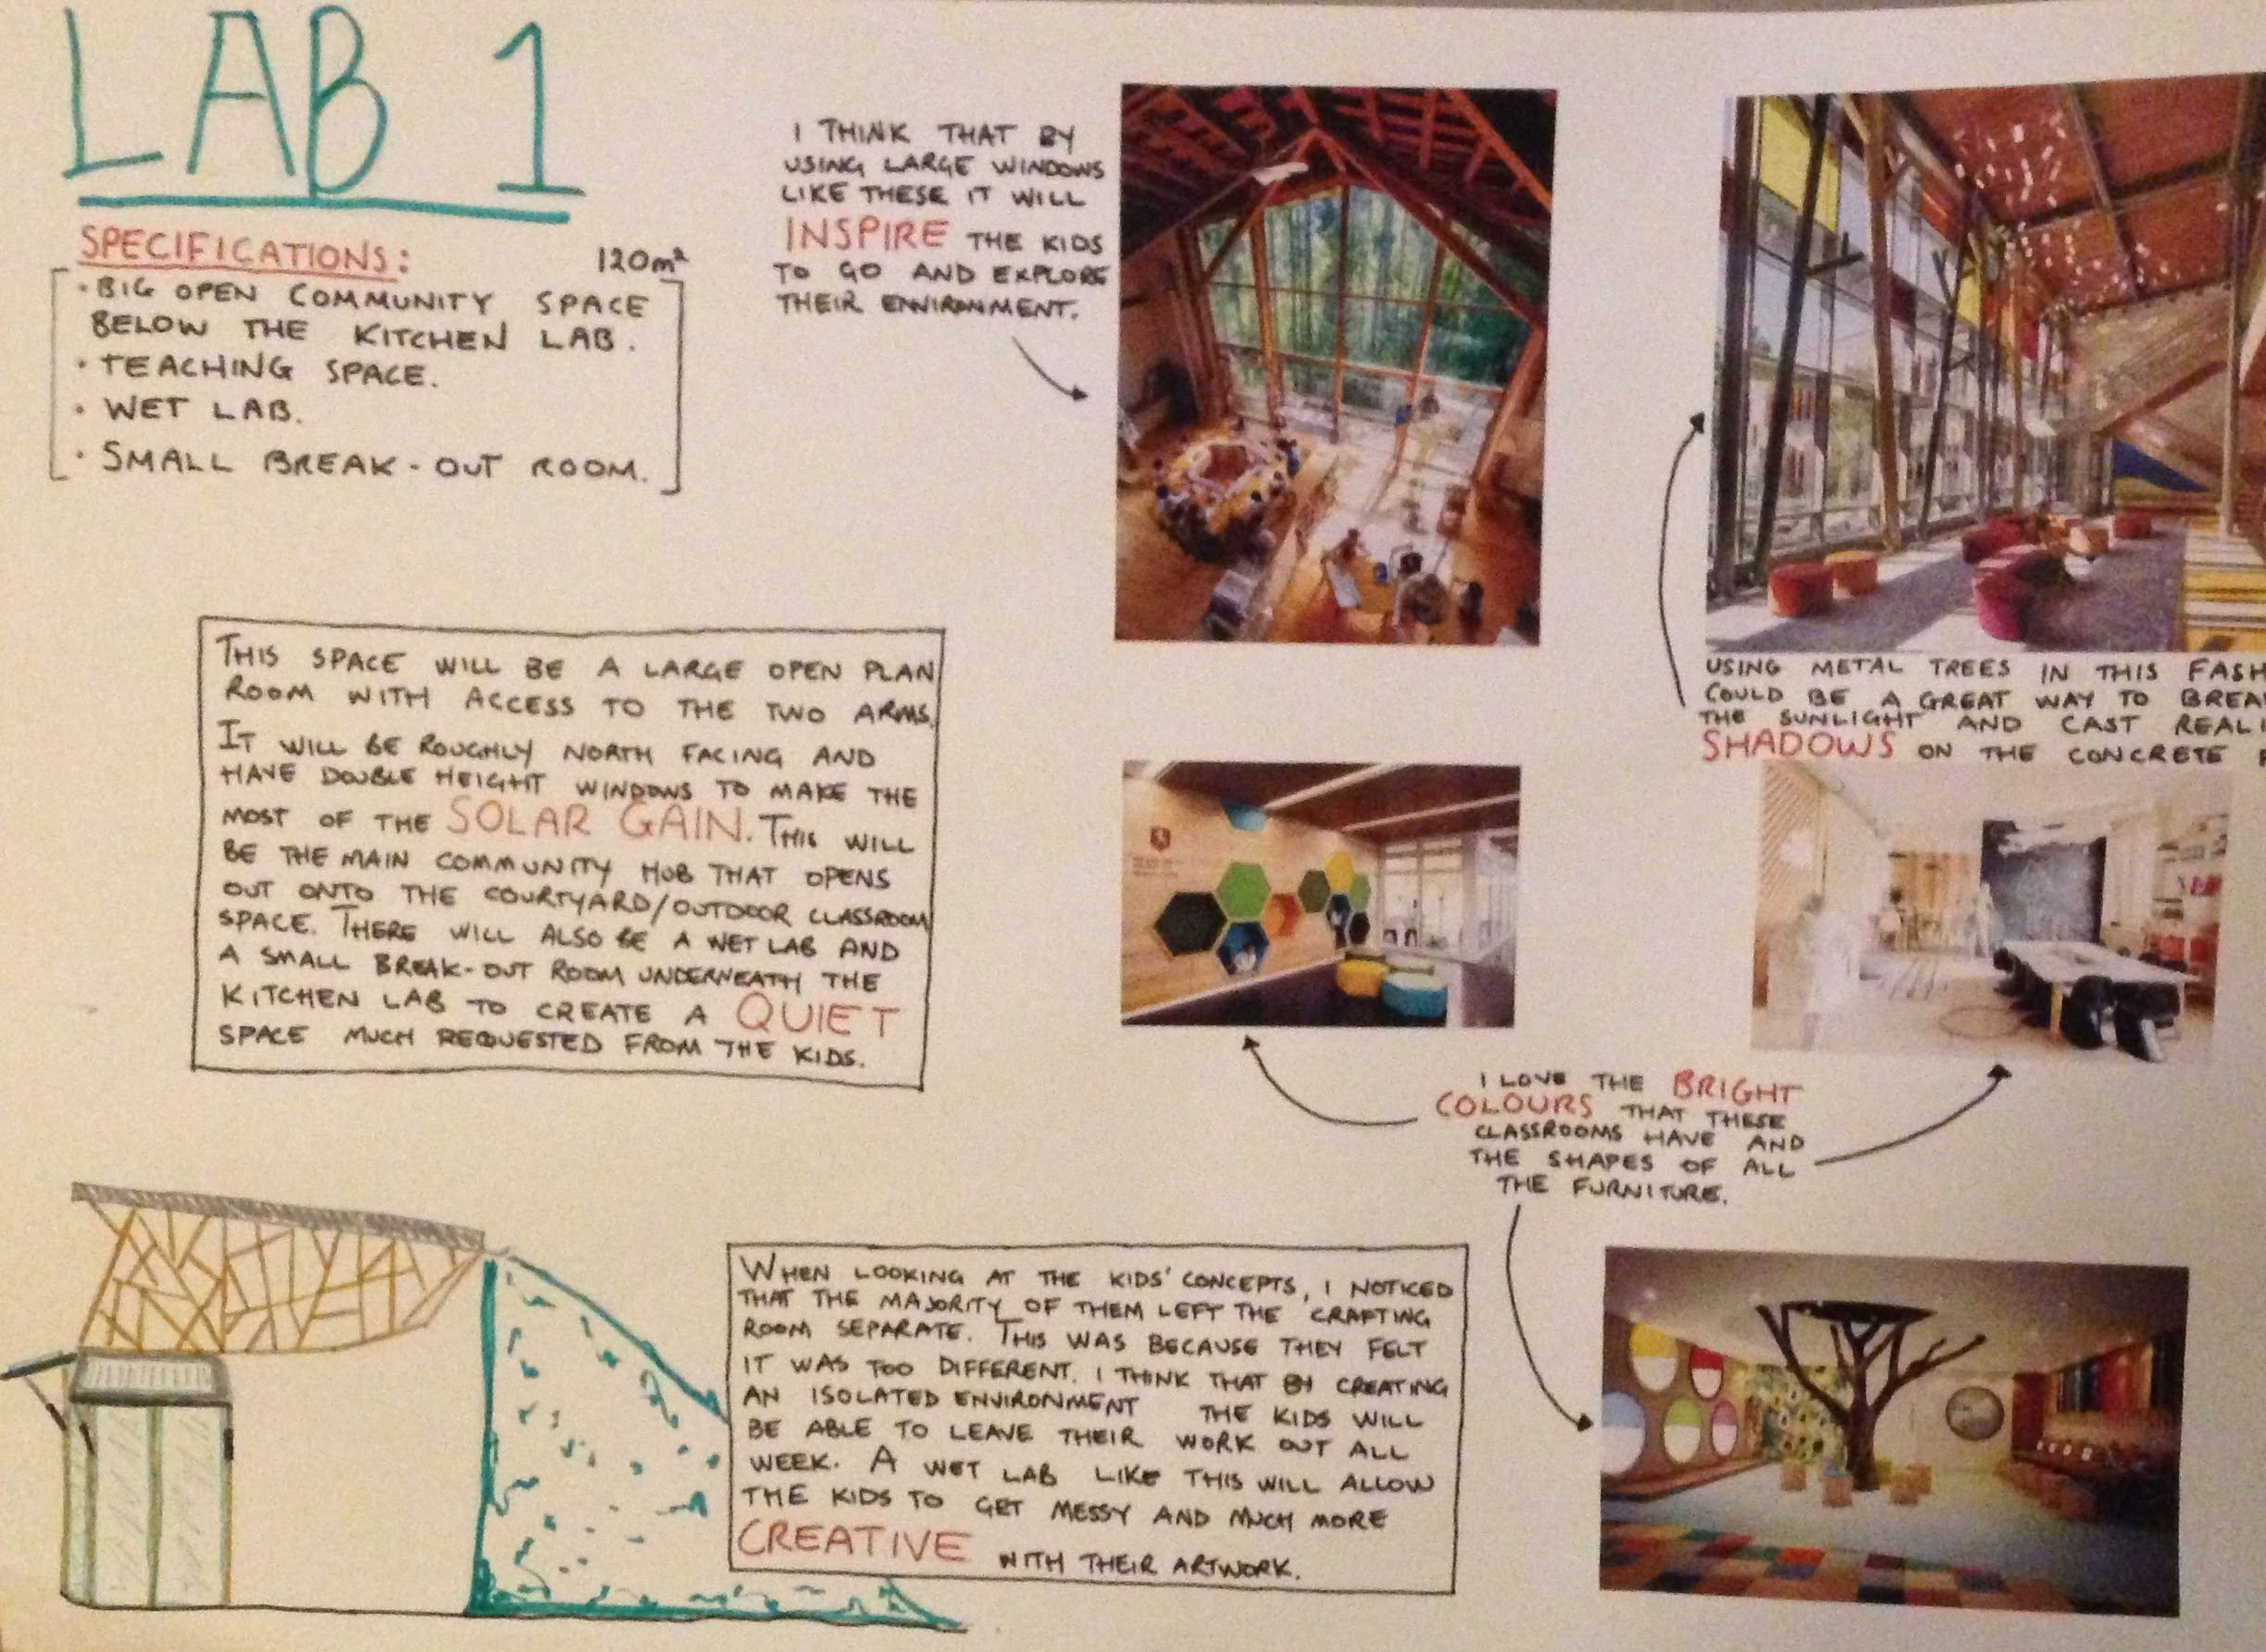 LAB 1
SPECIFICATIONS:
120m²
• BIG OPEN COMMUNITY SPACE
BELOW THE KITCHEN LAB.
• TEACHING SPACE.
• WET LAB.
• SMALL BREAK-OUT ROOM.
I THINK THAT BY
USING LARGE WINDOWS
LIKE THESE IT WILL
INSPIRE THE KIDS
TO GO AND EXPLORE
THEIR ENVIRONMENT.
USING METAL TREES IN THIS FASH
COULD BE A GREAT WAY TO BREA
THE SUNLIGHT AND CAST REALI
SHADOWS ON THE CONCRETE F
THIS SPACE WILL BE A LARGE OPEN PLAN
ROOM WITH ACCESS TO THE TWO ARMS.
IT WILL BE ROUGHLY NORTH FACING AND
HAVE DOUBLE HEIGHT WINDOWS TO MAKE THE
MOST OF THE SOLAR GAIN. THIS WILL
BE THE MAIN COMMUNITY HUB THAT OPENS
OUT ONTO THE COURTYARD/OUTDOOR CLASSROOM
SPACE. THERE WILL ALSO BE A WET LAB AND
A SMALL BREAK-OUT ROOM UNDERNEATH THE
KITCHEN LAB TO CREATE A QUIET
SPACE MUCH REQUESTED FROM THE KIDS.
I LOVE THE BRIGHT
COLOURS THAT THESE
CLASSROOMS HAVE AND
THE SHAPES OF ALL
THE FURNITURE.
WHEN LOOKING AT THE KIDS' CONCEPTS, I NOTICED
THAT THE MAJORITY OF THEM LEFT THE CRAFTING
ROOM SEPARATE. THIS WAS BECAUSE THEY FELT
IT WAS TOO DIFFERENT. I THINK THAT BY CREATING
AN ISOLATED ENVIRONMENT THE KIDS WILL
BE ABLE TO LEAVE THEIR WORK OUT ALL
WEEK. A WET LAB LIKE THIS WILL ALLOW
THE KIDS TO GET MESSY AND MUCH MORE
CREATIVE WITH THEIR ARTWORK.